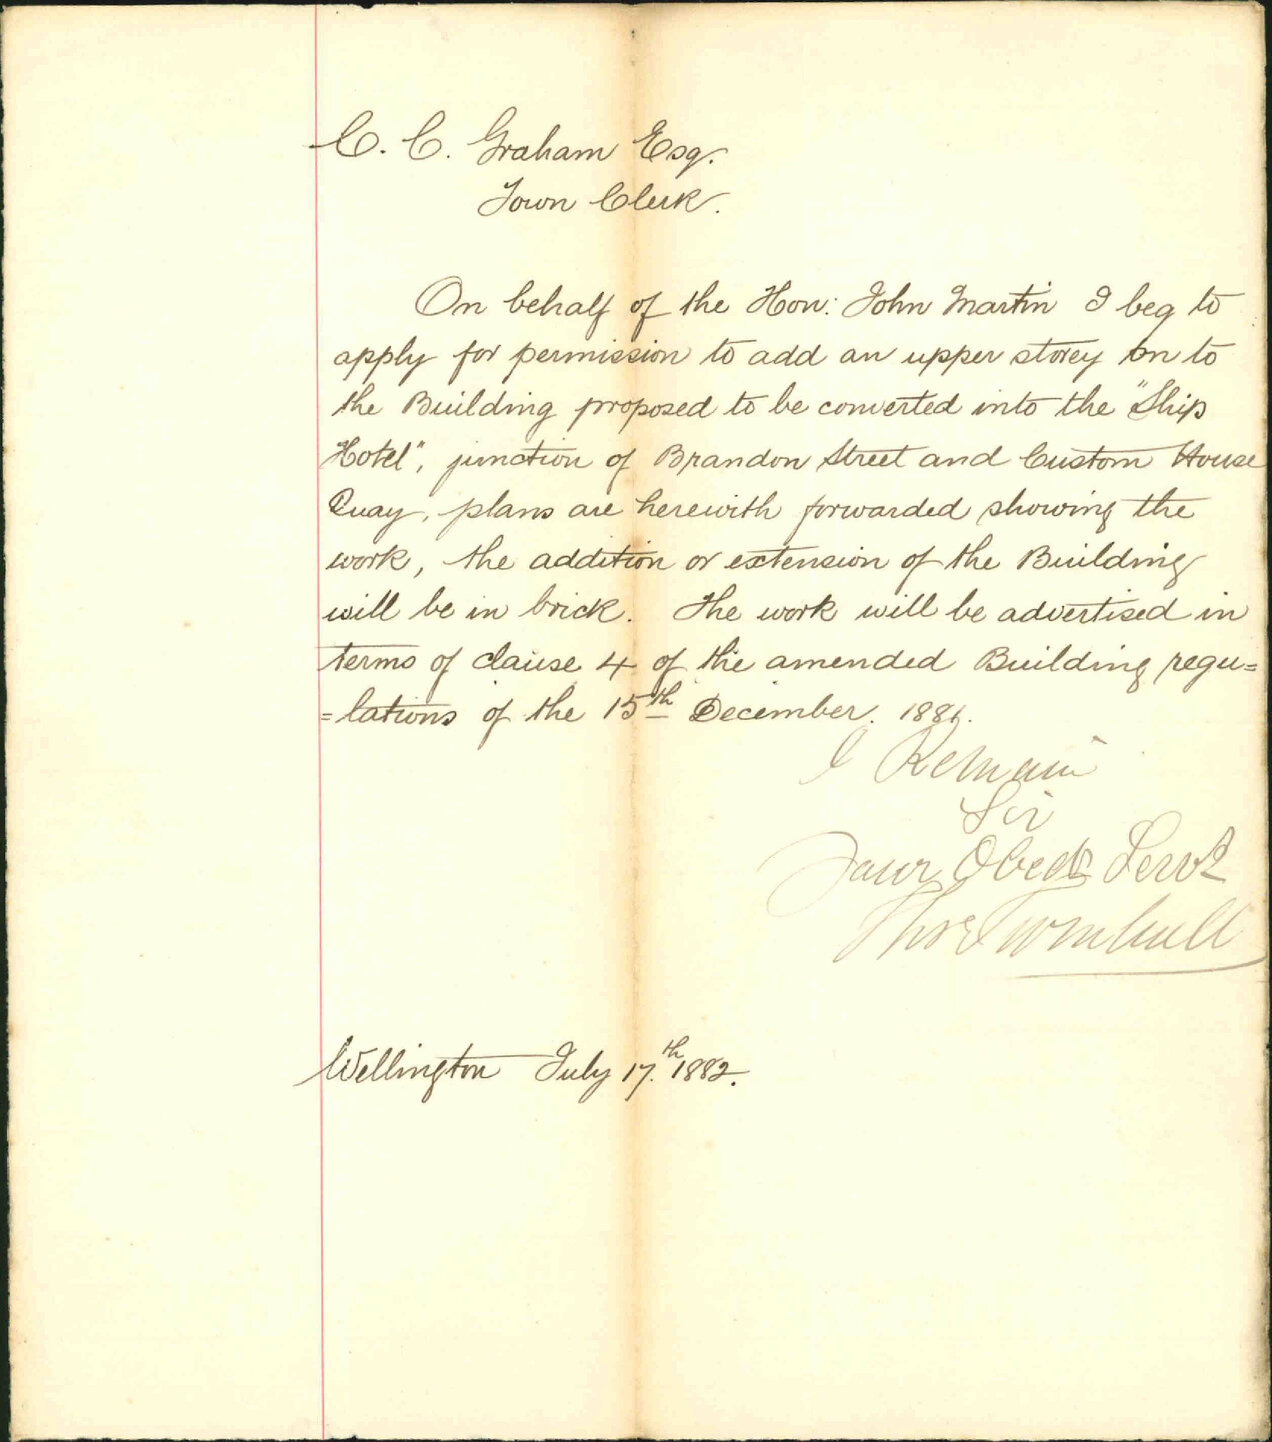 C. C. Graham Esq.
Town Clerk.
On behalf of the Hon: John Martin I beg to
apply for permission to add an upper storey on to
the Building proposed to be converted into the "Ship
Hotel", junction of Brandon Street and Custom House
Quay, plans are herewith forwarded showing the
work, the addition or extension of the Building
will be in brick. The work will be advertised in
terms of clause 4 of the amended Building regu=
=lations of the 15th December. 1881.
I Remain
Sir
Your Obedt Servt
Thos Turnbull
Wellington July 17.th 1882.